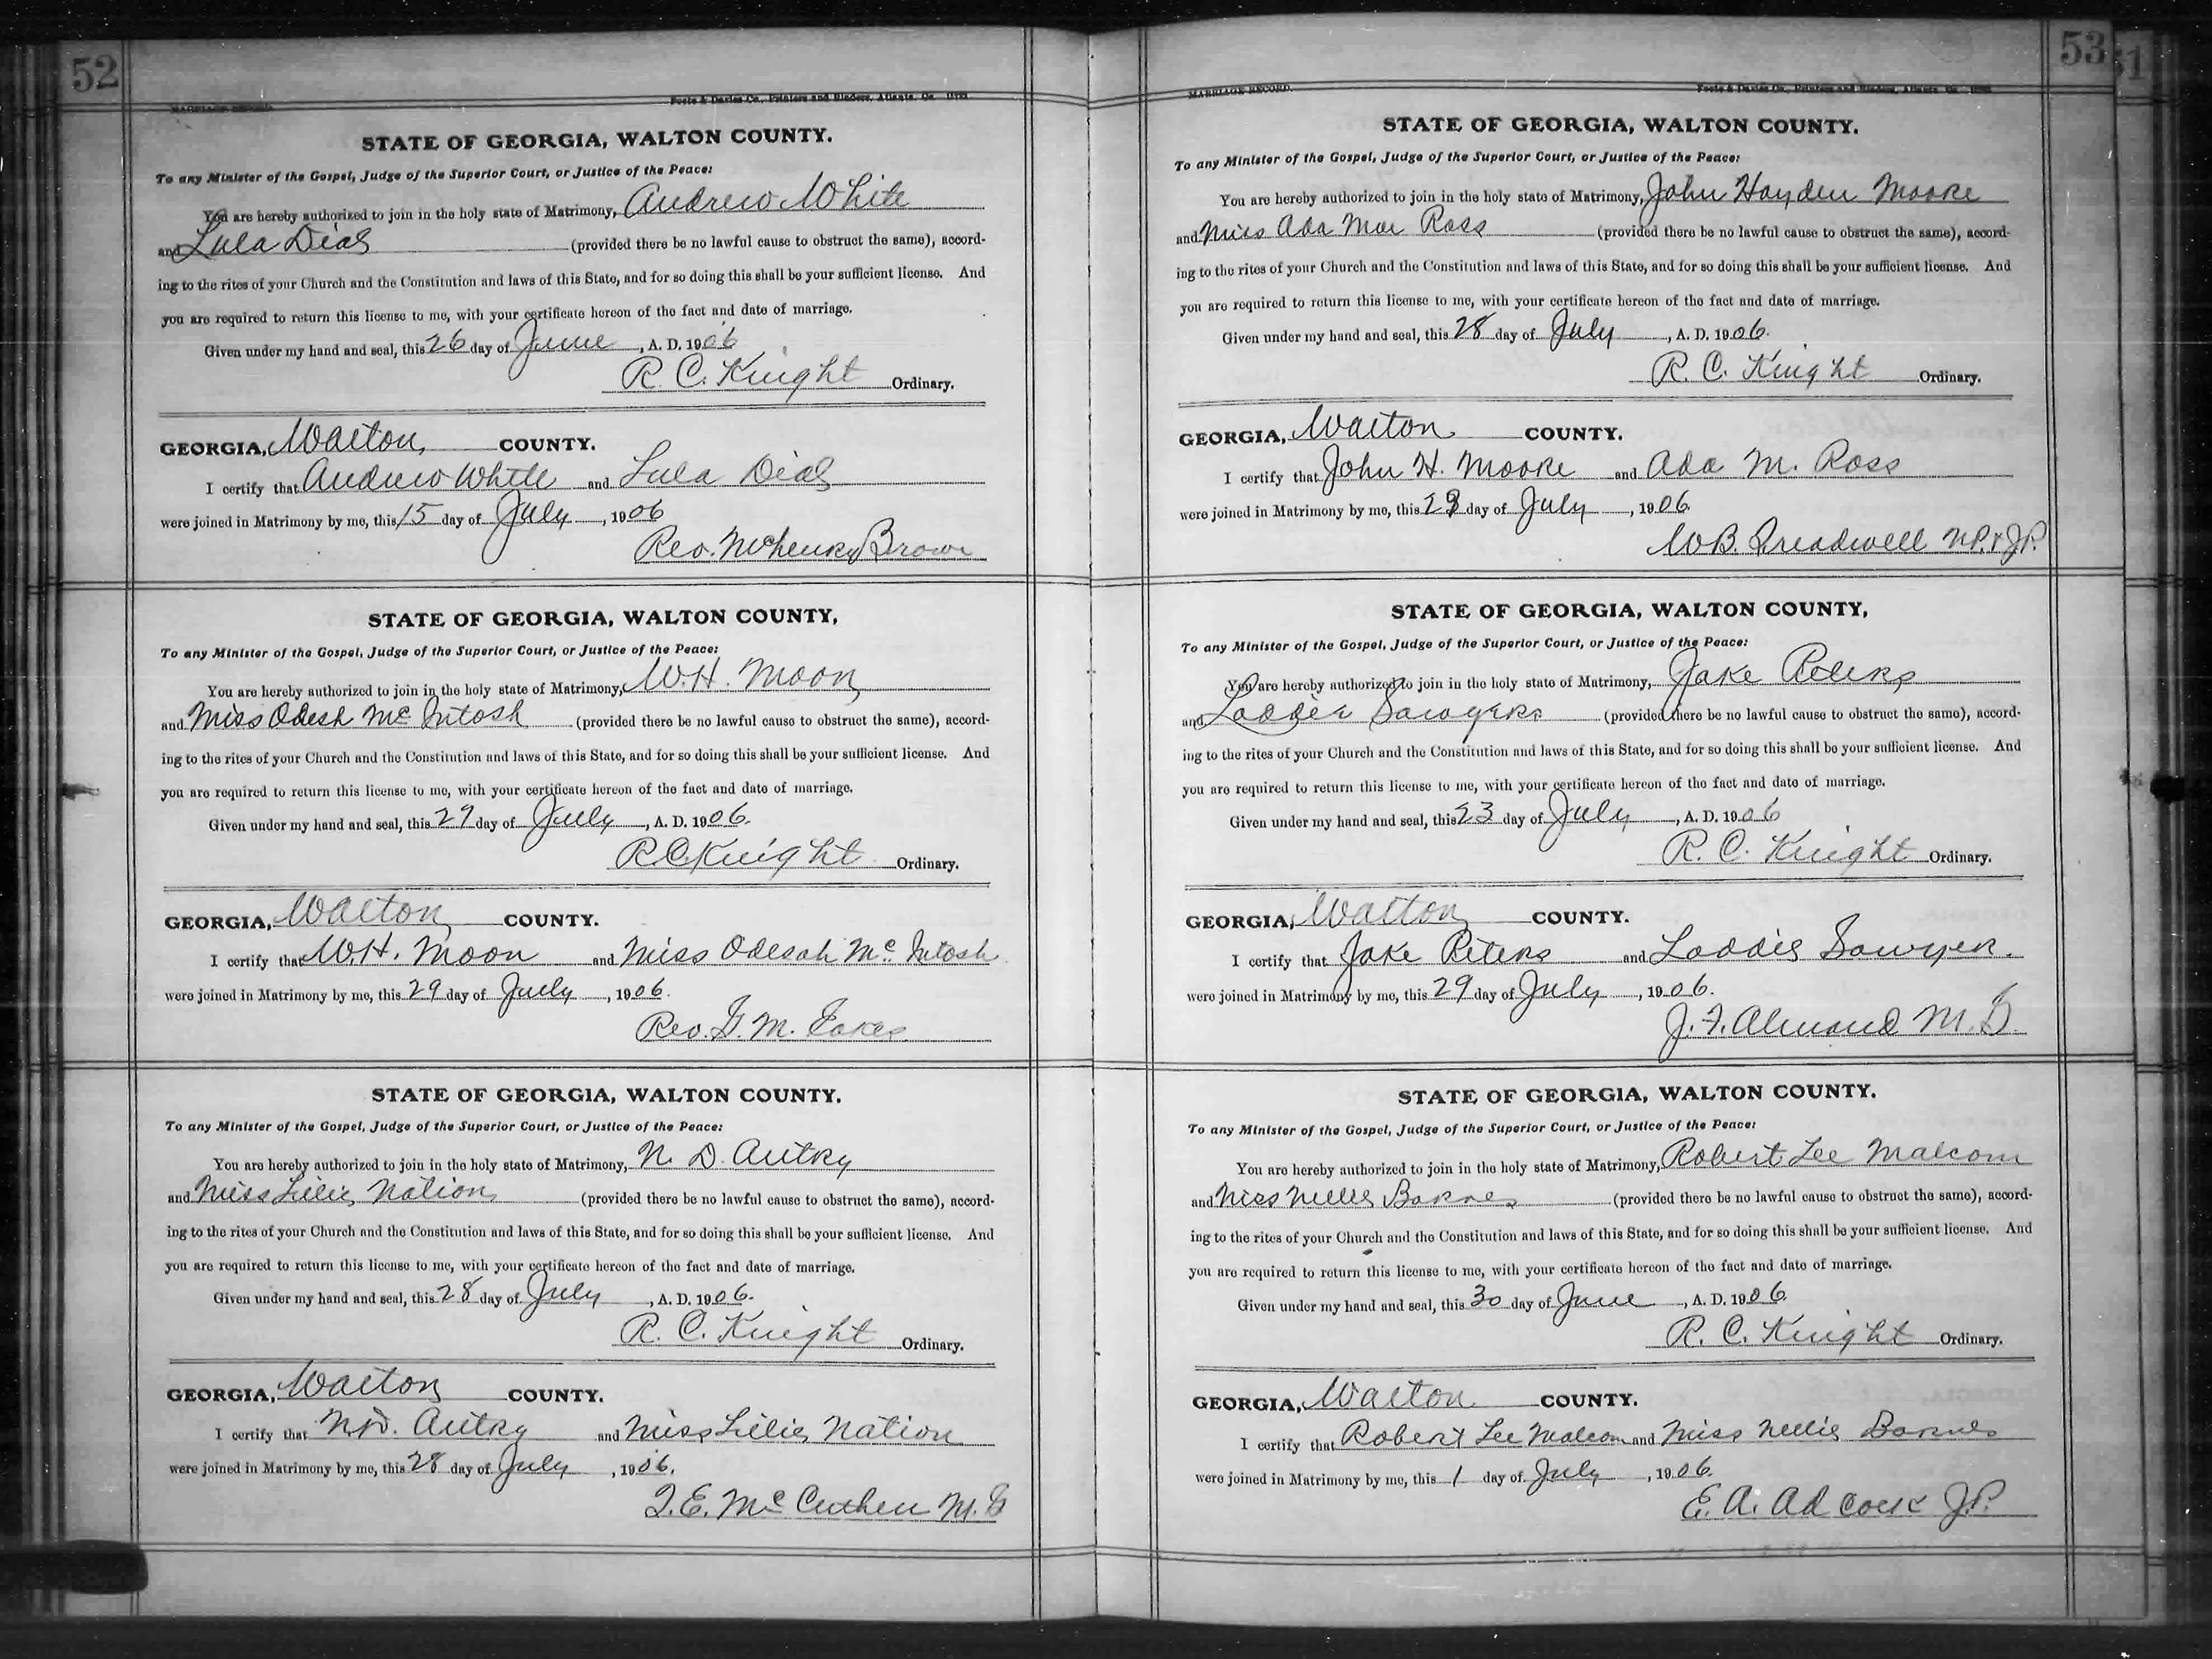 52
MARRIAGE RECORD.
Foote & Davies Co., Printers and Binders, Atlanta, Ga.
STATE OF GEORGIA, WALTON COUNTY.
To any Minister of the Gospel, Judge of the Superior Court, or Justice of the Peace:
You are hereby authorized to join in the holy state of Matrimony, Andrew White
and Lula Dial (provided there be no lawful cause to obstruct the same), accord-
ing to the rites of your Church and the Constitution and laws of this State, and for so doing this shall be your sufficient license. And
you are required to return this license to me, with your certificate hereon of the fact and date of marriage.
Given under my hand and seal, this 26 day of June, A. D. 1906
R. C. Knight Ordinary.
GEORGIA, Walton, COUNTY.
I certify that Andrew White and Lula Dial
were joined in Matrimony by me, this 15 day of July, 1906
Rev. McHenry Brown
STATE OF GEORGIA, WALTON COUNTY,
To any Minister of the Gospel, Judge of the Superior Court, or Justice of the Peace:
You are hereby authorized to join in the holy state of Matrimony, W. H. Moon
and Miss Odesh McIntosh (provided there be no lawful cause to obstruct the same), accord-
ing to the rites of your Church and the Constitution and laws of this State, and for so doing this shall be your sufficient license. And
you are required to return this license to me, with your certificate hereon of the fact and date of marriage.
Given under my hand and seal, this 27 day of July, A. D. 1906.
R. C. Knight Ordinary.
GEORGIA, Walton COUNTY.
I certify that W. H. Moon and Miss Odesah McIntosh
were joined in Matrimony by me, this 29 day of July, 1906.
Rev. G. M. Eakes
STATE OF GEORGIA, WALTON COUNTY.
To any Minister of the Gospel, Judge of the Superior Court, or Justice of the Peace:
You are hereby authorized to join in the holy state of Matrimony, N. D. Autry
and Miss Lillie Nation (provided there be no lawful cause to obstruct the same), accord-
ing to the rites of your Church and the Constitution and laws of this State, and for so doing this shall be your sufficient license. And
you are required to return this license to me, with your certificate hereon of the fact and date of marriage.
Given under my hand and seal, this 28 day of July, A. D. 1906.
R. C. Knight Ordinary.
GEORGIA, Walton COUNTY.
I certify that N. D. Autry and Miss Lillie Nation
were joined in Matrimony by me, this 28 day of July, 1906.
McCuthen M. G
53
51
MARRIAGE RECORD.
Foote & Davies Co., Printers and Binders, Atlanta, Ga.
STATE OF GEORGIA, WALTON COUNTY.
To any Minister of the Gospel, Judge of the Superior Court, or Justice of the Peace:
You are hereby authorized to join in the holy state of Matrimony, John Hayden Moore
and Miss Ada Mae Ross (provided there be no lawful cause to obstruct the same), accord-
ing to the rites of your Church and the Constitution and laws of this State, and for so doing this shall be your sufficient license. And
you are required to return this license to me, with your certificate hereon of the fact and date of marriage.
Given under my hand and seal, this 28 day of July, A. D. 1906.
R. C. Knight Ordinary.
GEORGIA, Walton COUNTY.
I certify that John H. Moore and Ada M. Ross
were joined in Matrimony by me, this 29 day of July, 1906.
W B. Treadwell N.P. & J.P.
STATE OF GEORGIA, WALTON COUNTY,
To any Minister of the Gospel, Judge of the Superior Court, or Justice of the Peace:
You are hereby authorized to join in the holy state of Matrimony, Jake Peters
and Loddie Sawyers (provided there be no lawful cause to obstruct the same), accord-
ing to the rites of your Church and the Constitution and laws of this State, and for so doing this shall be your sufficient license. And
you are required to return this license to me, with your certificate hereon of the fact and date of marriage.
Given under my hand and seal, this 23 day of July, A. D. 1906
R. C. Knight Ordinary.
GEORGIA, Walton COUNTY.
I certify that Jake Peters and Loddie Sawyer.
were joined in Matrimony by me, this 29 day of July, 1906.
J. F. Almand M. G.
STATE OF GEORGIA, WALTON COUNTY.
To any Minister of the Gospel, Judge of the Superior Court, or Justice of the Peace:
You are hereby authorized to join in the holy state of Matrimony, Robert Lee Malcom
and Miss Nellie Barnes (provided there be no lawful cause to obstruct the same), accord-
ing to the rites of your Church and the Constitution and laws of this State, and for so doing this shall be your sufficient license. And
you are required to return this license to me, with your certificate hereon of the fact and date of marriage.
Given under my hand and seal, this 30 day of June, A. D. 1906
R. C. Knight Ordinary.
GEORGIA, Walton COUNTY.
I certify that Robert Lee Malcom and Miss Nellie Barnes
were joined in Matrimony by me, this 1 day of July, 1906.
E. A. Adcock J.P.